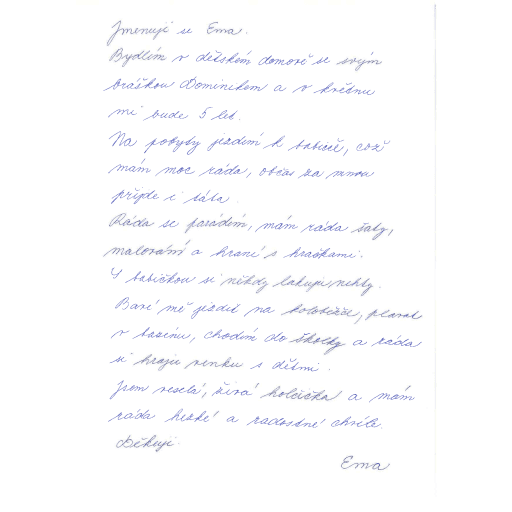 Jmenuji se Ema.
Bydlím v dětském domově se svým
bráškou Dominikem a v květnu
mi bude 5 let.
Na pobyty jezdím k babičce, což
mám moc ráda, občas za mnou
přijde i táta.
Ráda se parádím, mám ráda šaty,
malování a hraní s hračkami.
S babičkou si někdy lakuji nehty.
Baví mě jezdit na koloběžce, plavat
v bazénu, chodím do školky a ráda
si hraju venku s dětmi.
Jsem veselá, živá holčička a mám
ráda hezké a radostné chvíle.
Děkuji.
Ema